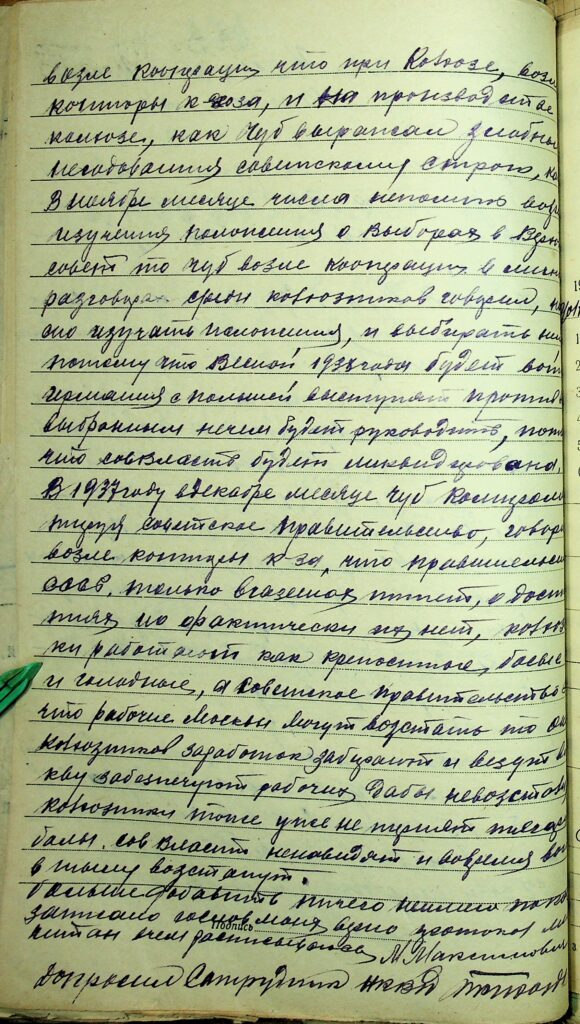 возле кооперации что при колхозе, возл
конторы к-хоза, и на производстве
колхозе, как Чуб выражал злобны
негодования советскому строю, ка
В ноябре месяце числа непомню возл
изучения положения о выборах в Верх
совет то Чуб возле кооперации в
разговорах среди колхозников говорил,
изучать положения, и выбирать
потому что весной 1938 года будет вой
германия с польшей выступят против
выбранным нечем будет руководить, пот
что соввласть будет ликвидирована.
В 1937 году вдекабре месяце Чуб
советское правительство, говор
возле конторы к-за, что правительс
СССР. только вгазетах пишет, о дост
но фактически их нет, колхоз
ки работают как крепостные, босые
и голодные, а Советское правительство
что рабочие Москвы могут возстать то
колхозников заработок забирают и везут в
кву забезпечуют рабочих дабы невозстав
колхозники тоже уже не
совласть ненавидят и вовремя вой
в тылу возстанут.
больше добавить ничего неимею
записано сослов моих верно протокол
читан очем расписываюсь М. Максимов
Подпись
допросил Сотрудник НКВД